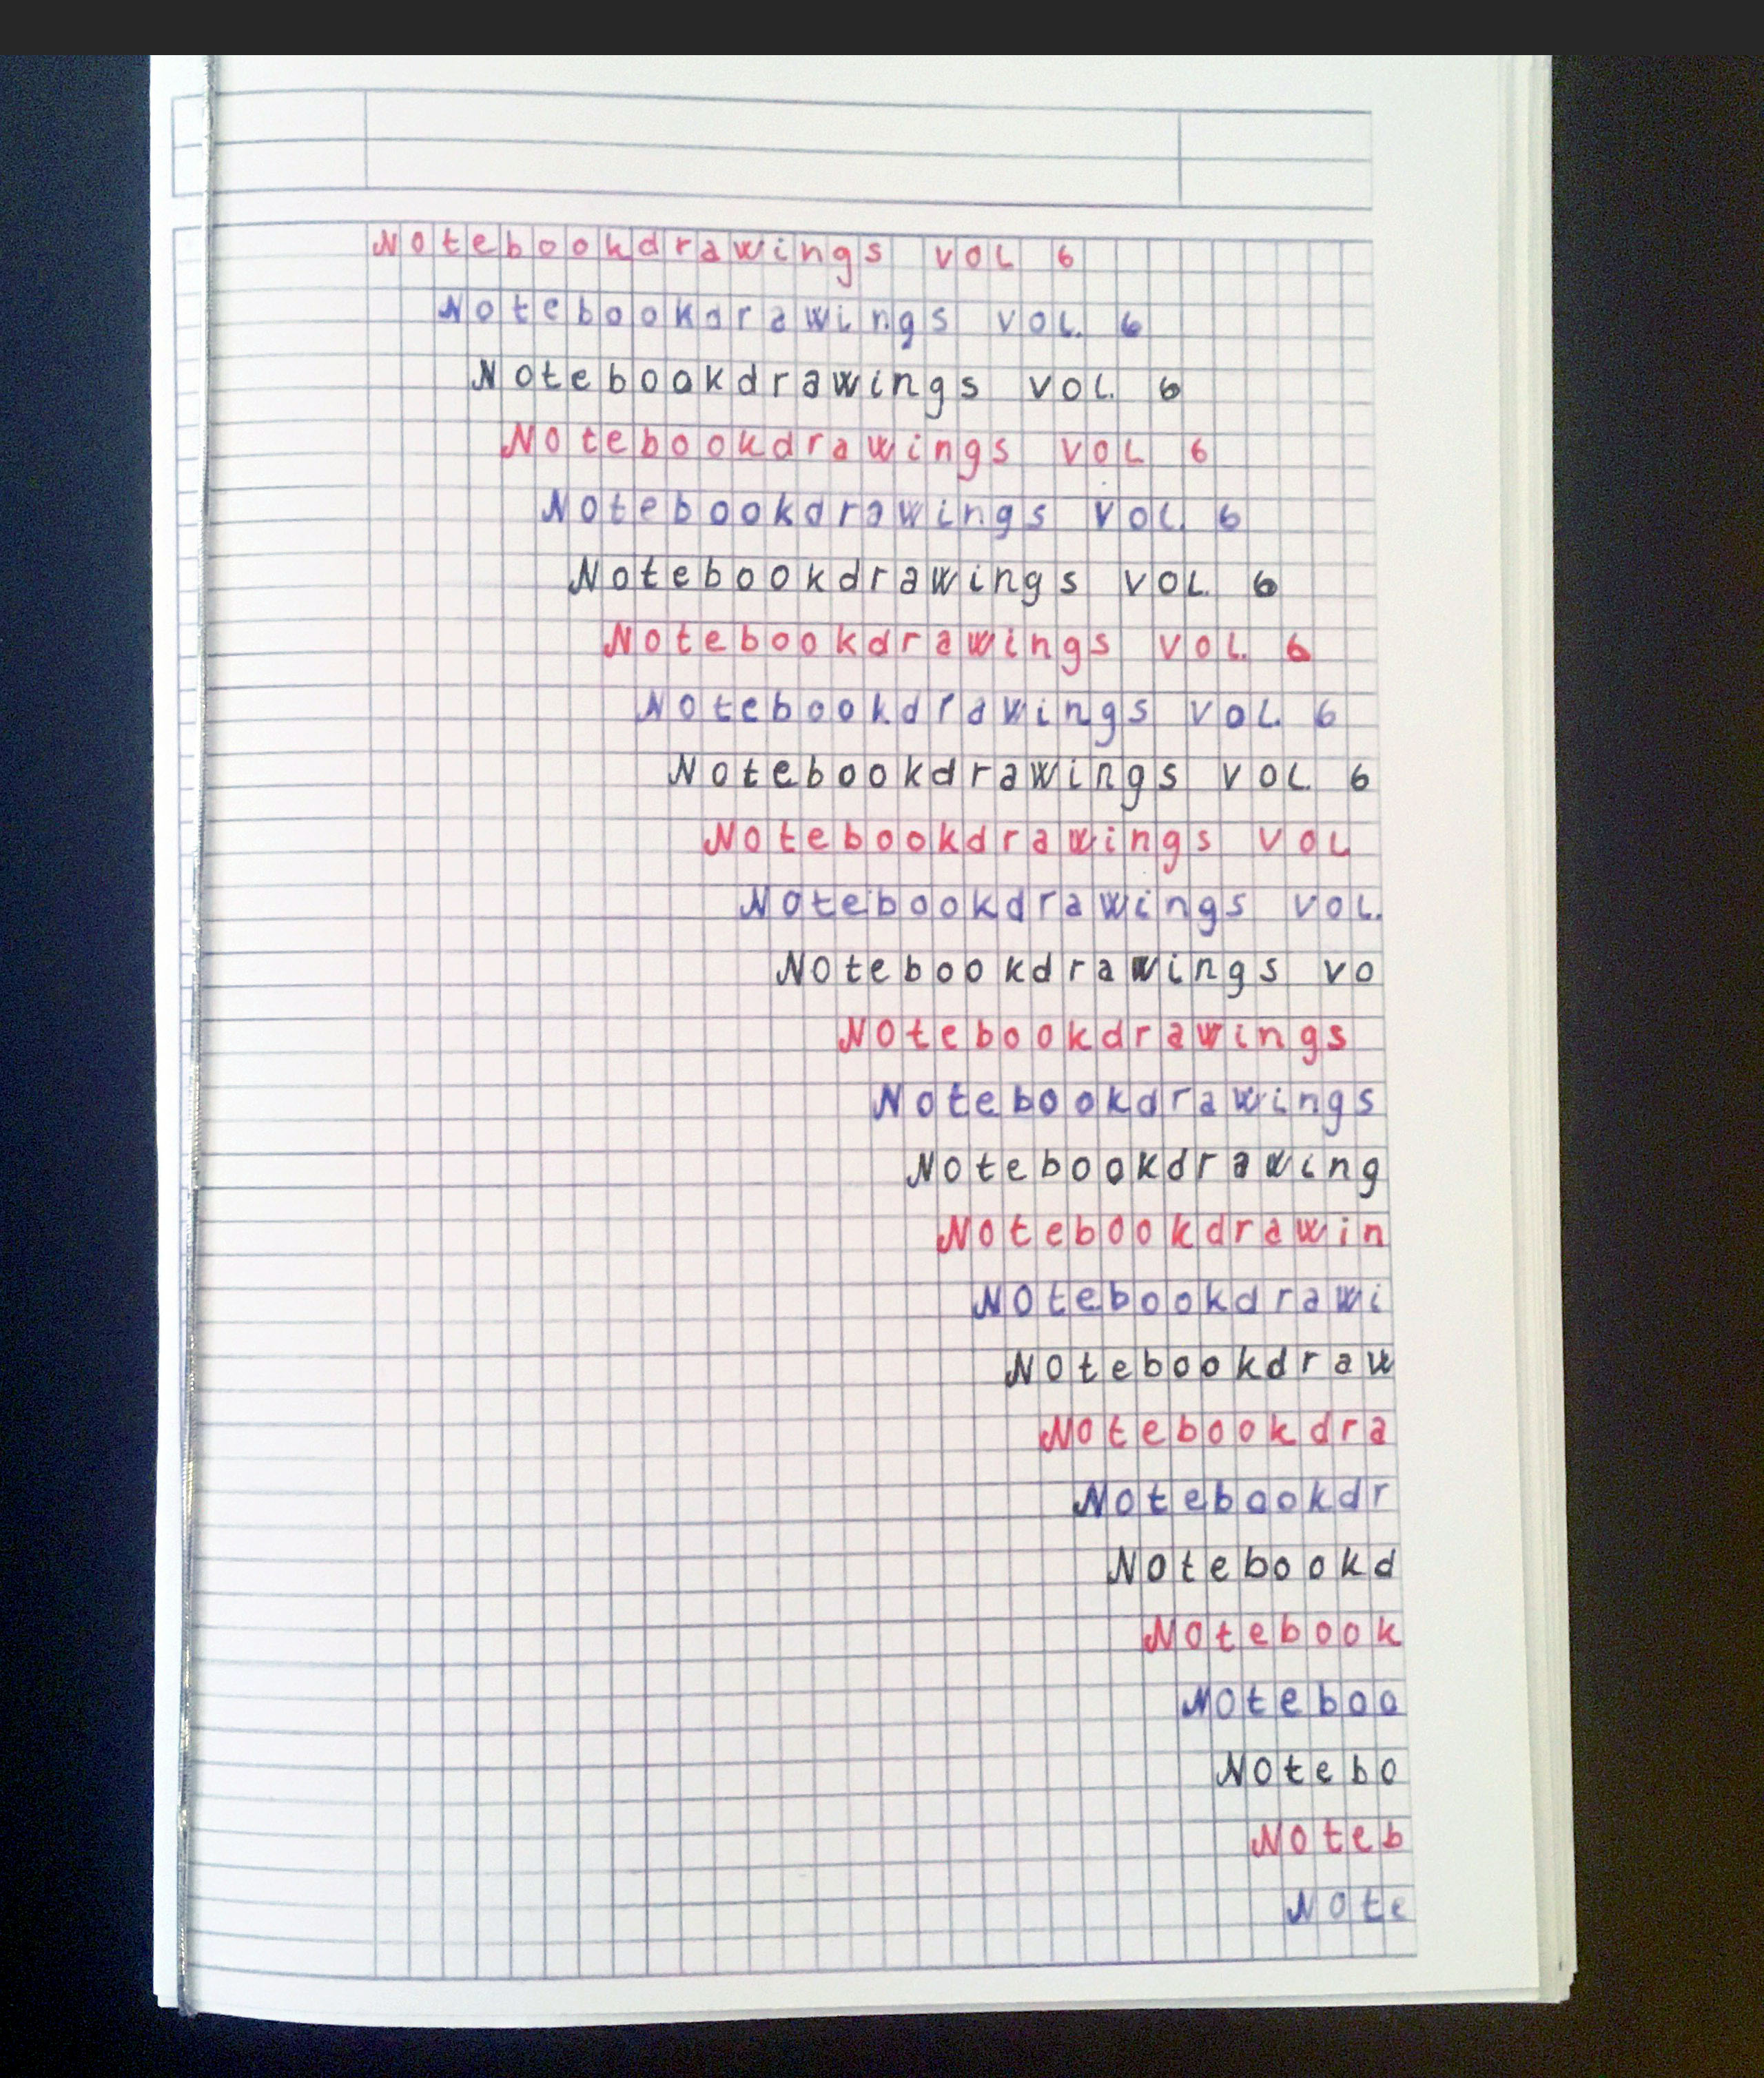 Notebookdrawings VOL 6
Notebookdrawings VOL. 6
Notebookdrawings VOL. 6
Notebookdrawings VOL 6
Notebookdrawings VOL. 6
Notebookdrawings VOL. 6
Notebookdrawings VOL. 6
Notebookdrawings VOL. 6
Notebookdrawings VOL. 6
Notebookdrawings VOL
Notebookdrawings VOL.
Notebookdrawings VO
Notebookdrawings
Notebookdrawings
Notebookdrawing
Notebookdrawin
Notebookdrawi
Notebookdraw
Notebookdra
Notebookdr
Notebookd
Notebook
Noteboo
Notebo
Noteb
Note